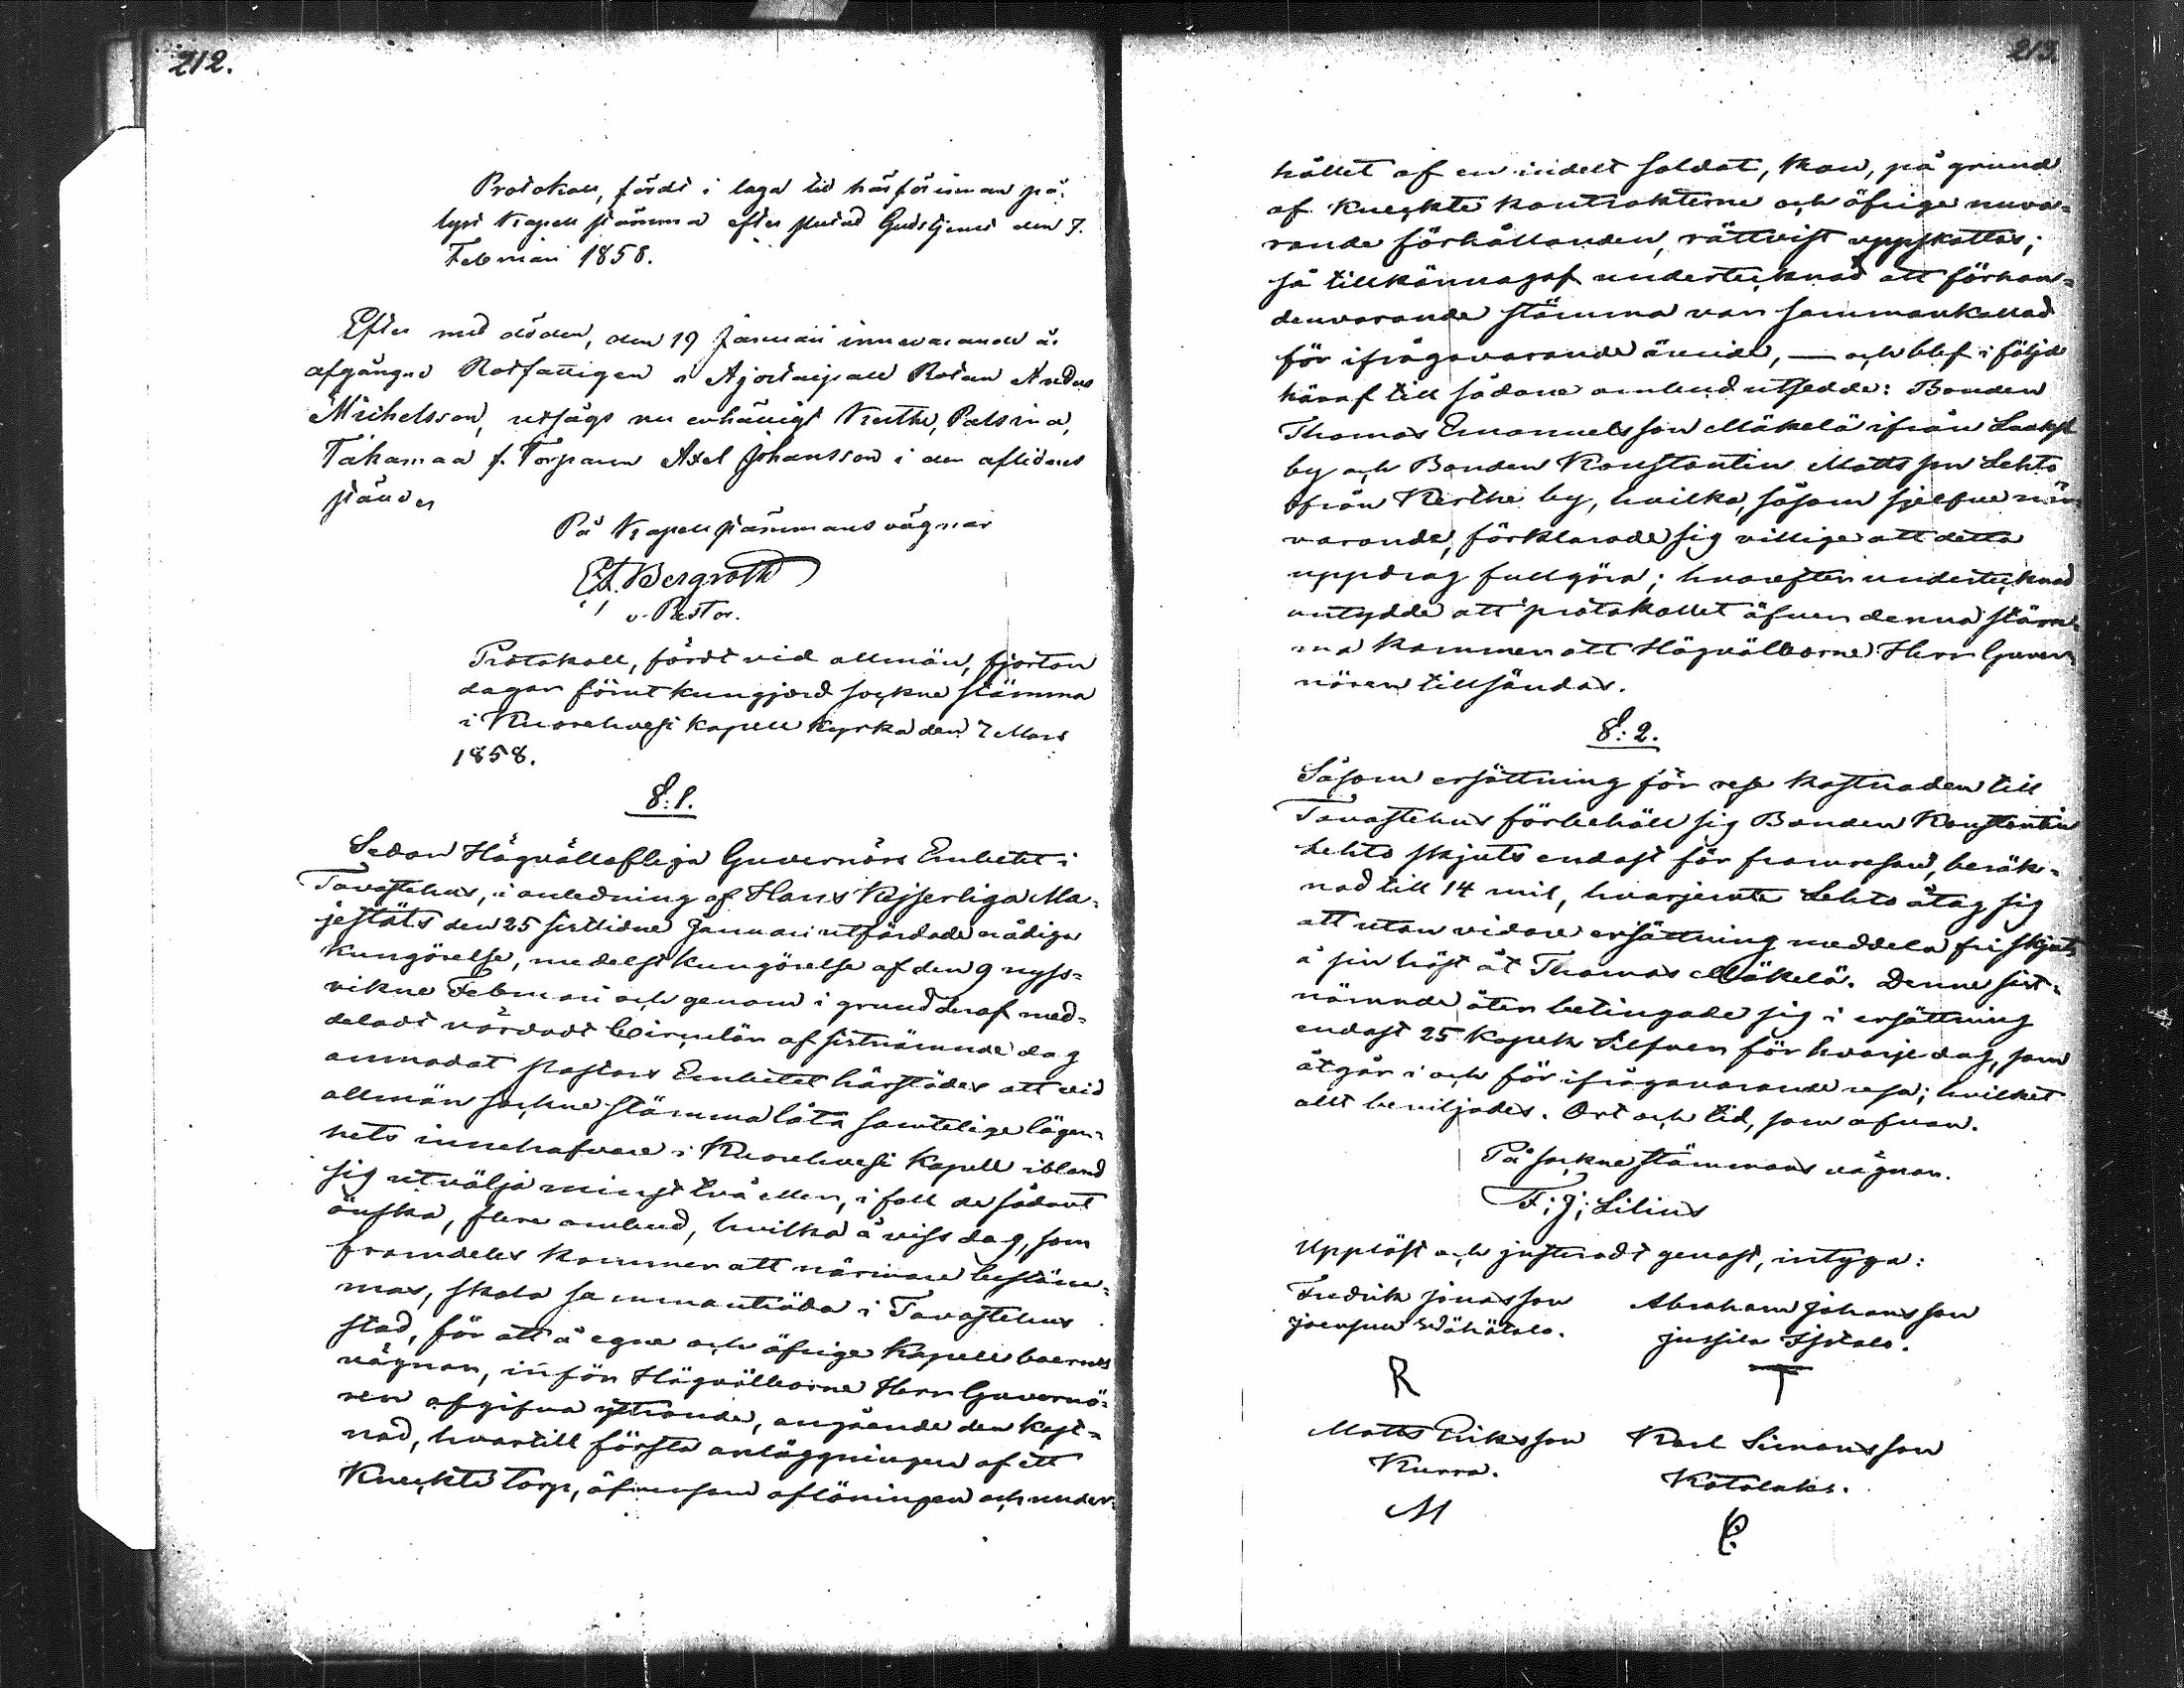 212.
Protokoll, fördt i laga tid härförinnan på-
lyst Kapell stämma efter slutad Gudstjenst den 7.
Februari 1858.
Efter med döden, den 19 Januari innevarande år
afgångne Rotfattigen å Rotan Anders
Michelsson, utsågs nu enhälligt
f. Torparen Axel Johansson i den aflidnes
ställe
På Kapell stämmans vägnar
Bergroth
v. Pastor.
Protokoll, fördt vid allmän, fjorton
dagar förut kungjord sockne stämma
i Kuorehvesi kapell kyrka den 7 Mars
1858.
§: 1.
Sedan Högvällofliga Guvernörs Embetet i
Tavastehus, i anledning af Hans Kejserliga Ma-
jestäts den 25 sistlidne Januari utfärdade nådiga
Kungörelse, medelst kungörelse af den 9 nyss-
vikne Februari och genom i grund deraf med-
deladt vördadt Cirkulär af sistnämnde dag
anmodat Pastors Embetet härstädes att vid
allmän sockne stämma låta samtelige lägen-
hets innehafvare i Kuorehvesi Kapell ibland
sig utvälja minst två eller, i fall de sådant
önska, flere ombud, hvilka å viss dag, som
framdeles kommer att närmare bestäm-
mas, skola sammanträda i Tavastehus
stad, för att å egne och öfrige Kapell boernes
vägnar, inför Högvälborne Herr Guvernö-
ren afgifva yttrande, angående den kost-
nad, hvartill första anläggningen af ett
Knekte torp, äfvensom aflöningen och under-
213.
hållet af en indelt soldat, kan, på grund
af Knekte kontrakterne och öfrige nuva-
rande förhållanden, rättvist uppskattas;
så tillkännagaf undertecknad att förhan-
denvarande stämma var sammankallad
för ifrågavarande ärende, — och blef i följd
häraf till sådane ombud utsedde: Bonden
Thomas Emanuelsson Mäkelä ifrån
by och Bonden Konstantin Mattsson Lehto
ifrån by, hvilka, såsom sjelfve när-
varande, förklarade sig villige att detta
uppdrag fullgöra; hvarefter undertecknad
antydde att protokollet öfver denna stäm-
ma kommer att Högvälborne Herr Guver-
nören tillsändas.
§: 2.
Såsom ersättning för rese kostnaden till
Tavastehus förbehöll sig Bonden Konstantin
Lehto skjuts endast för framresan, beräk-
nad till 14 mil, hvarjemte Lehto åtog sig
att utan vidare ersättning meddela fri skjuts
å sin häst åt Thomas Mäkelä. Denne sist-
nämnde åter betingade sig i ersättning
endast 25 kopek Silfver för hvarje dag, som
åtgår i och för ifrågavarande resa; hvilket
allt beviljades. Ort och tid, som ofvan.
På sockne stämmans vägnar.
F: J: Lilius
Uppläst och justeradt genast, intyga:
Fredrik Jonasson Abraham Johansson
Jussila
R T
Matts Eriksson Karl Simonsson
Kurra. Kotalaks.
M